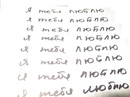 я тебя люблю
я тебя люблю
я тебя люблю
я тебя люблю
я тебя люблю
я тебя люблю
я тебя люблю
я тебя люблю